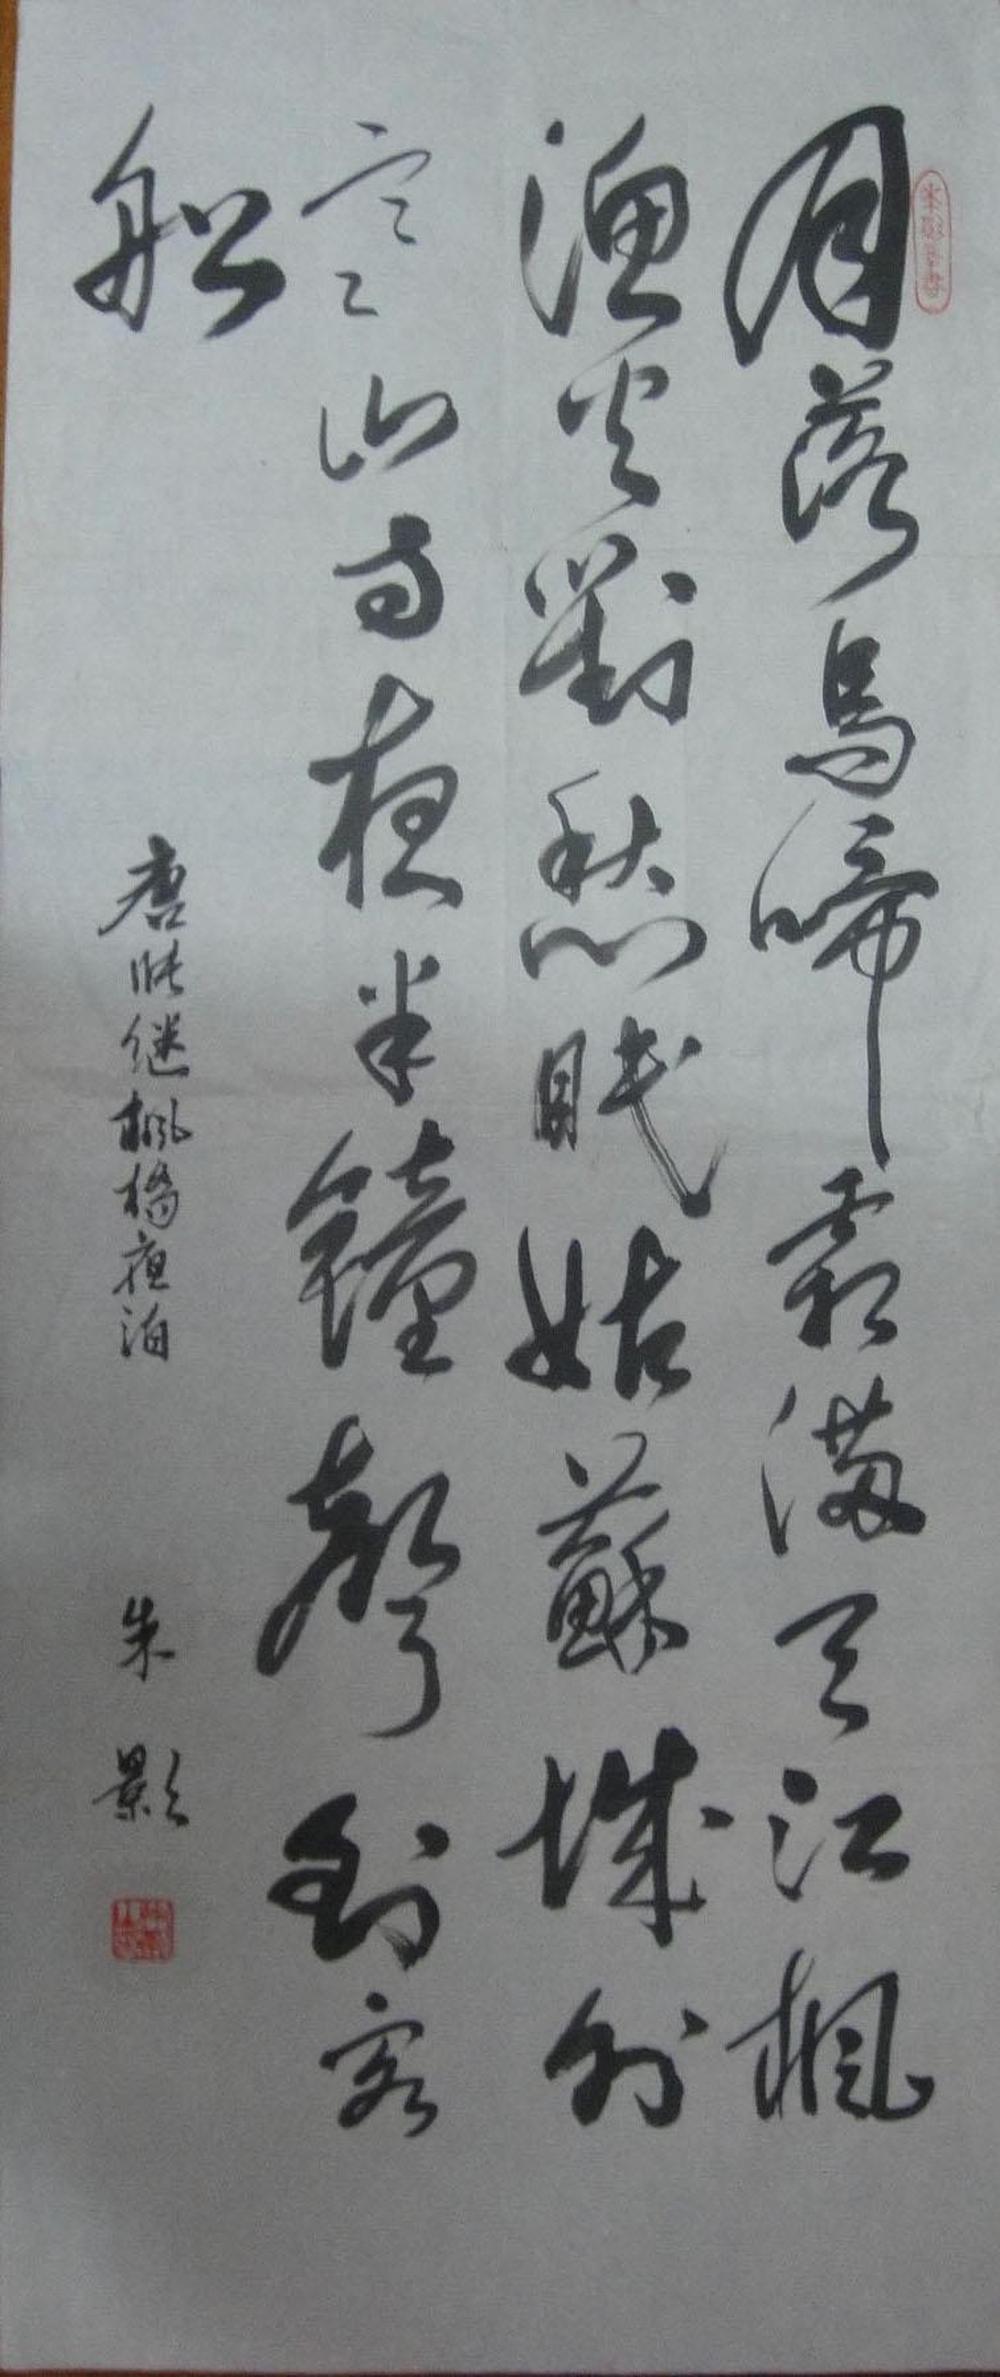 月落烏啼霜滿天江楓
漁火對愁眠姑蘇城外
寒山寺夜半鐘聲到客
船
唐張继楓橋夜泊
朱影